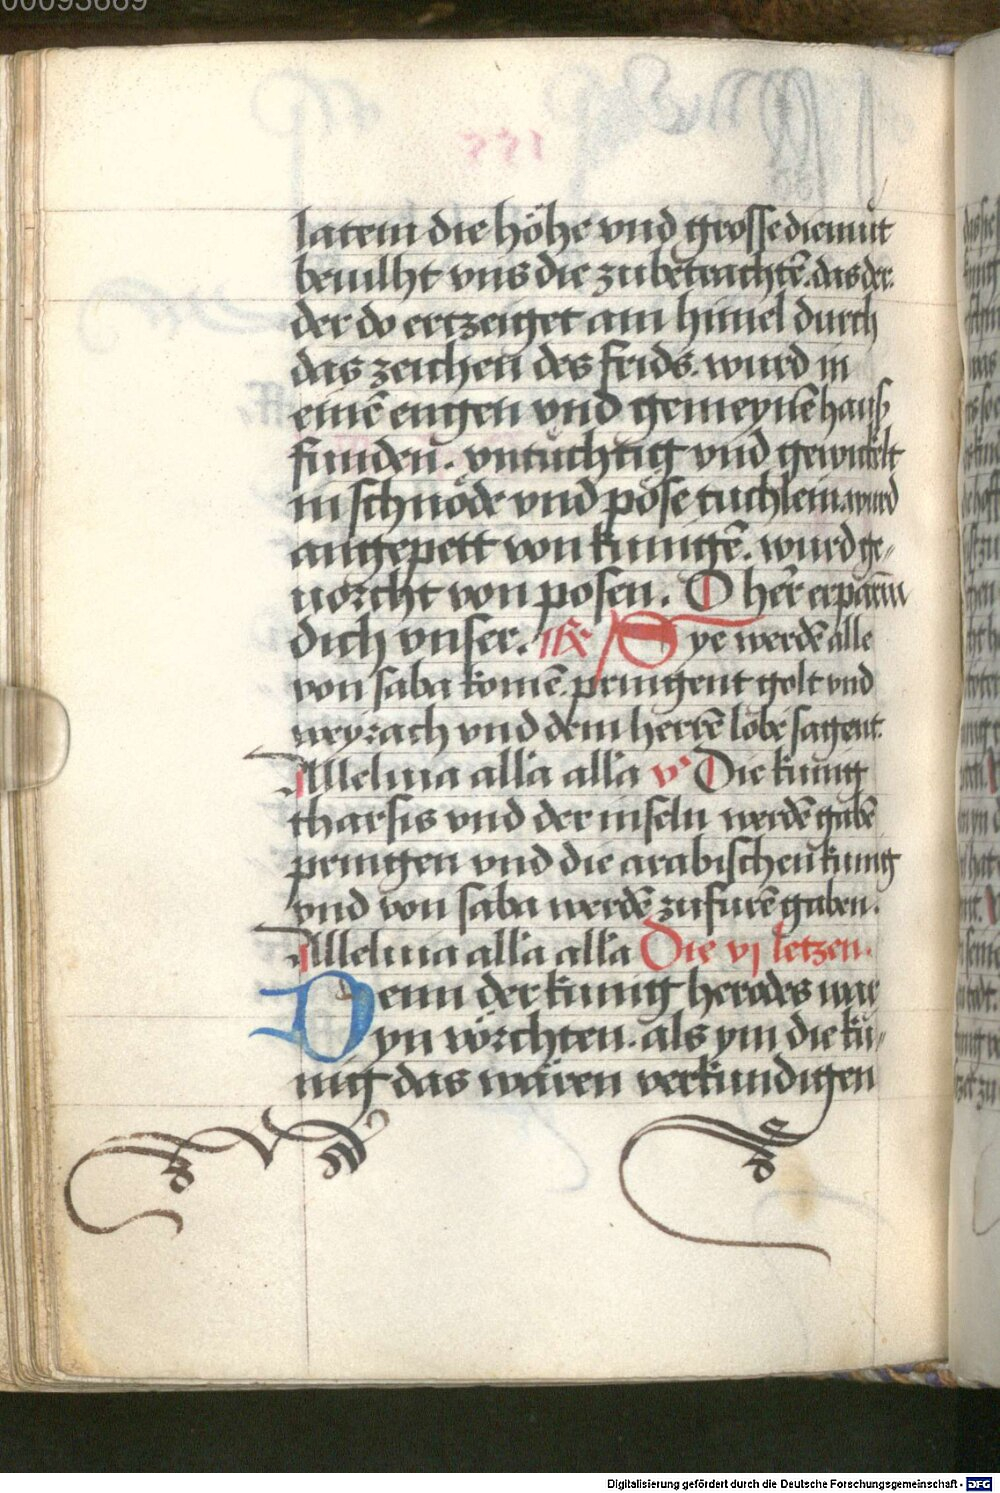 00093669
latein die höhe vnd grosse diemut
beuilht vns die zu betrachtē. das der.
der do ertzeiget am himel durch
das zeichen des frids. wurd in
einē engen vnd gemeynē hauß
funden. vntüchtig vnd gewickelt
in schnöde vnd pöse tuchlein. wurd
angepett von kunigē. wurd ge„
uorcht von posen. O her erparm
dich vnser. Rx Sye werdē alle
von saba komē. pringent golt vnd
weyrach vnd dem herrē lobe sagent.
Alleluia alla alla v' Die kunig
tharsis vnd der inseln werdē gabē
pringen vnd die arabischen kunig
vnd von saba werdē zufurē gaben.
Alleluia alla alla Die vj letzen.
Denn der kunig herodes war
yn vörchten. als ym die kü„
nig das waren verkundigen
Digitalisierung gefördert durch die Deutsche Forschungsgemeinschaft - DFG